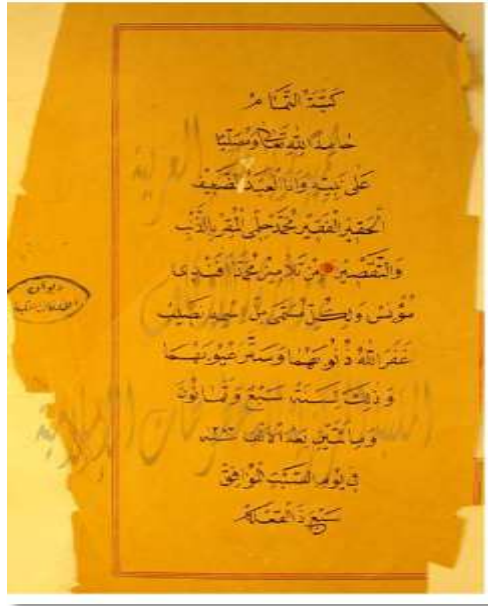 كتبته التمام
حامداً لله تعالى ومصلياً
على نبيه وانا العبد الضعيف
الحقير الفقير محمد حلمي المقر بالذنب
والتقصير من تلاميذ محمد افندي
مؤنس ولكل مسمى من اسمه نصيب
غفر الله ذنوبهما وستر عيوبهما
وذلك لسنة سبع وثمانون
ومأتين بعد الالف سنه
في يوم السبت الموافق
سبع ذالقعده
ديوان